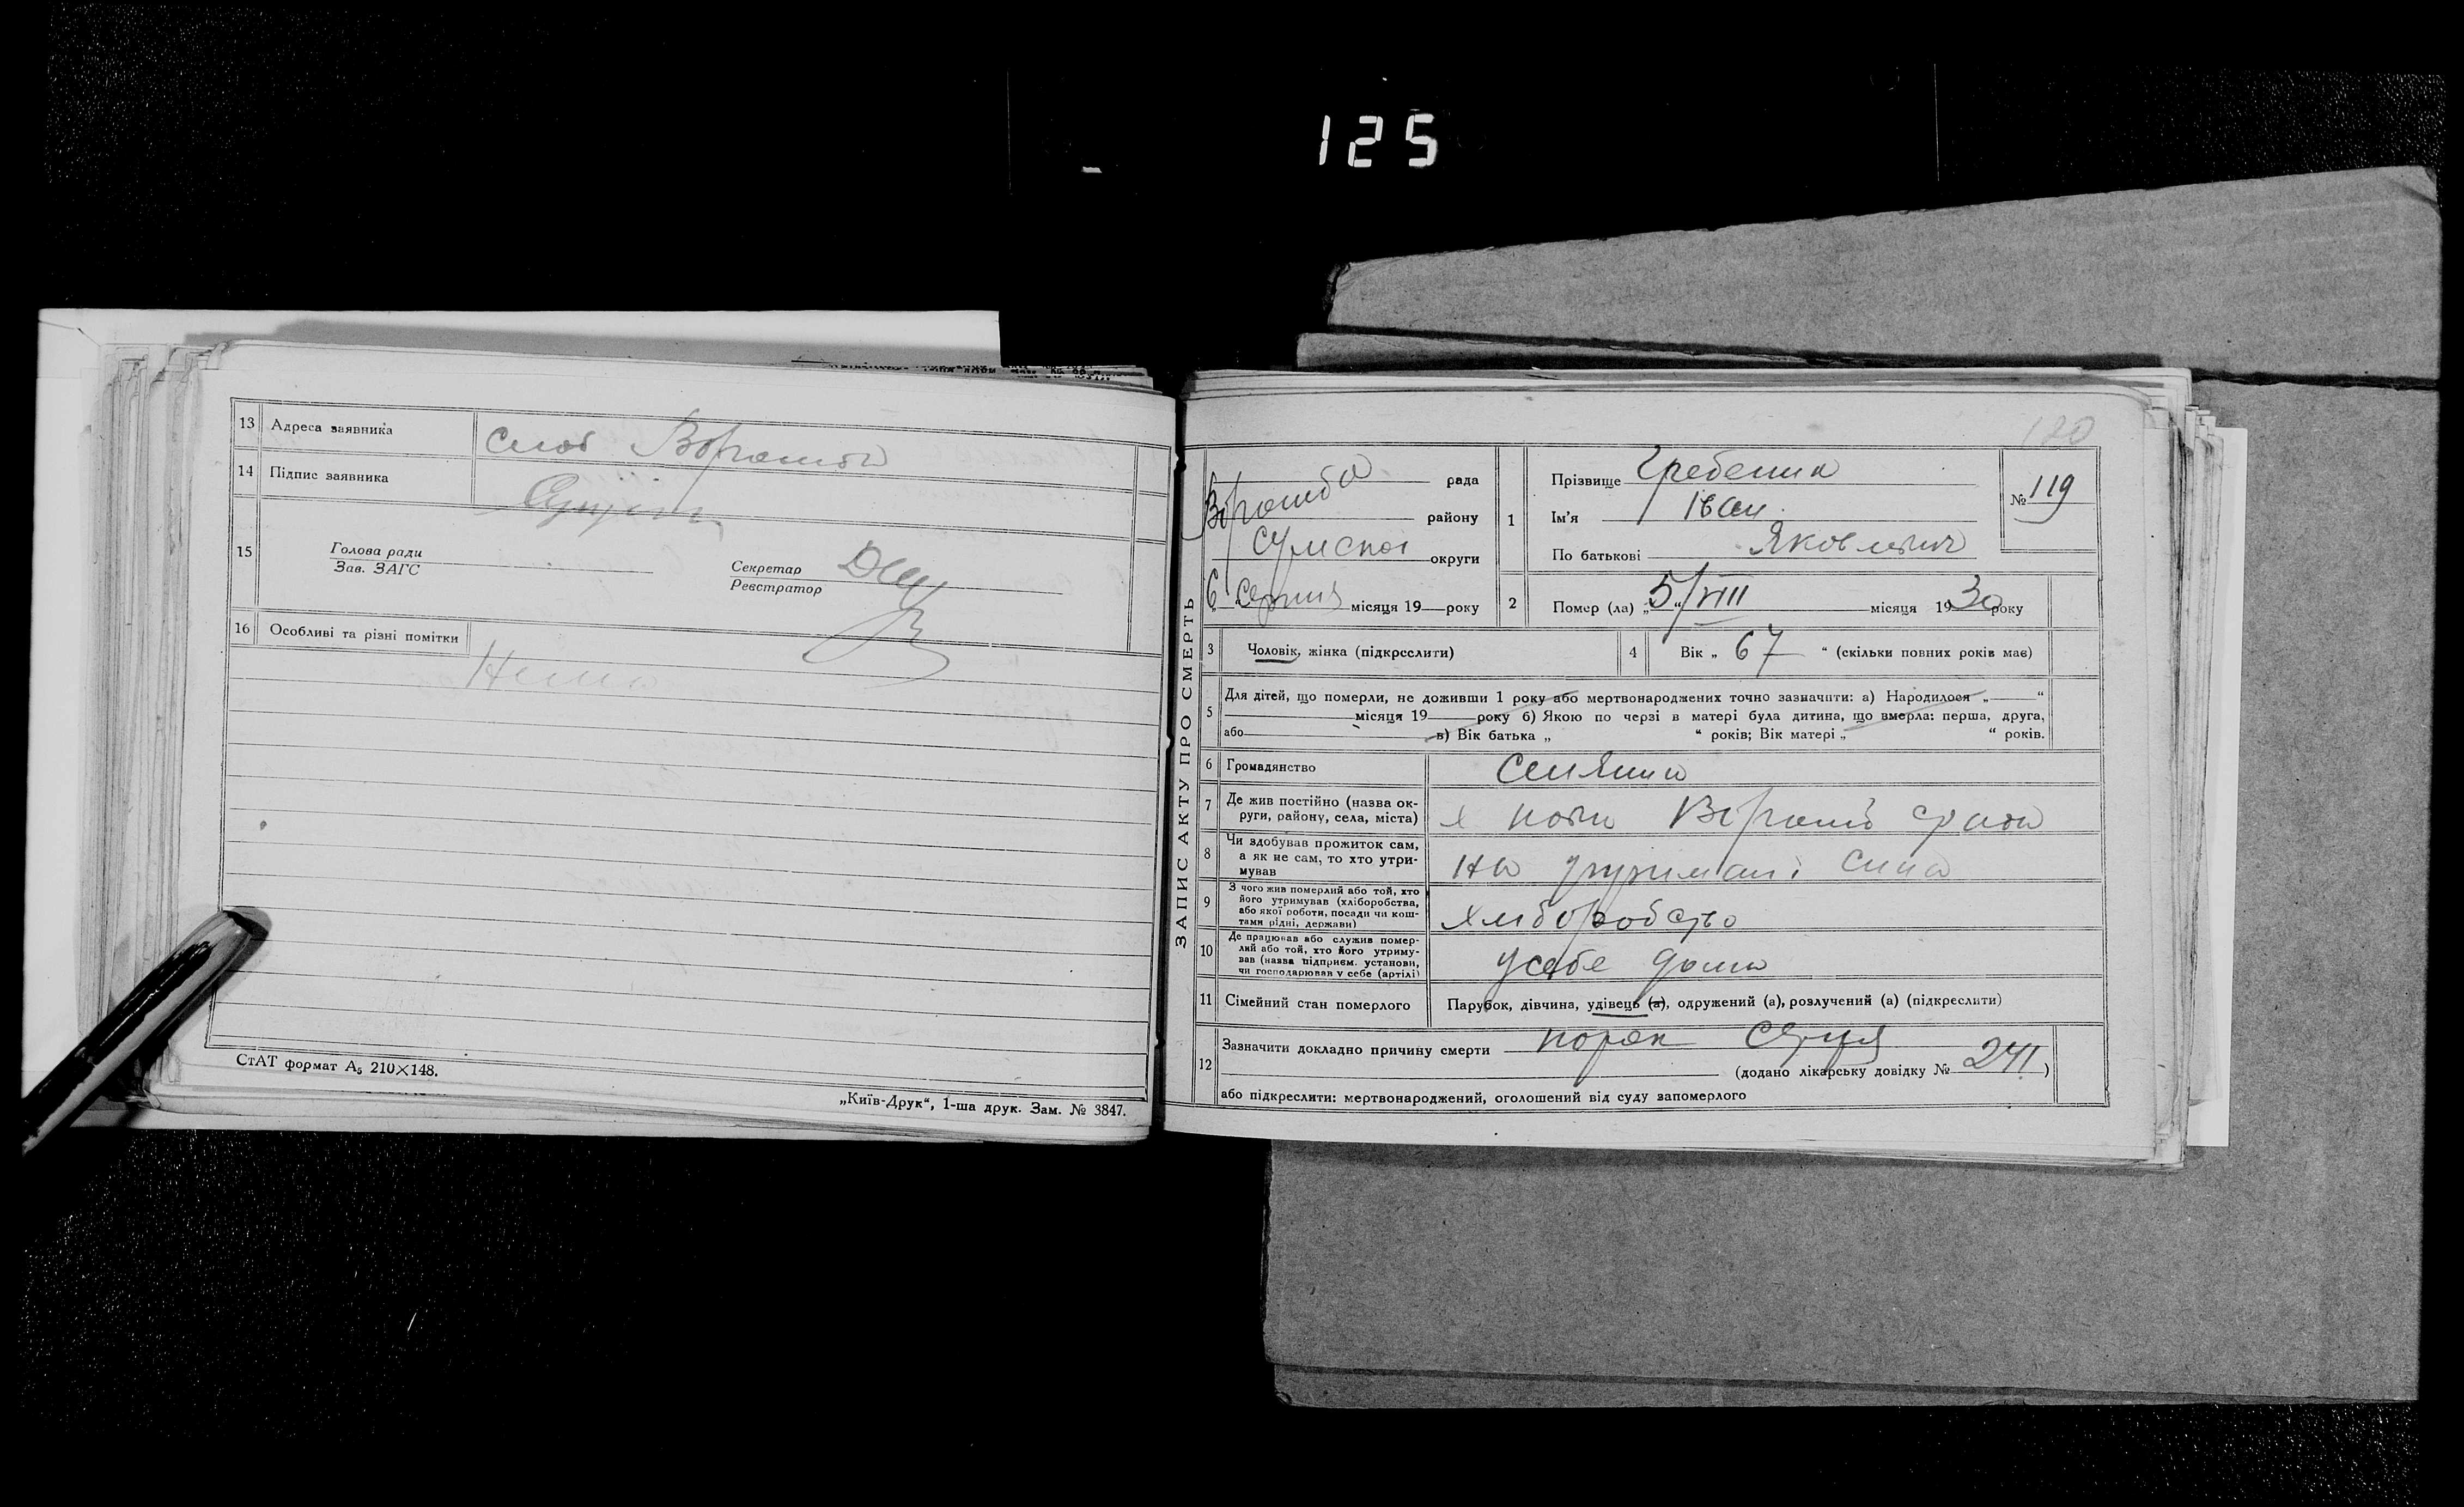 125
13 Адреса заявника слоб Ворожба
14 Підпис заявника
15 Голова ради
Зав. ЗАГС
Секретар
Реєстратор
16 Особливі та різні помітки
Нема
СтАТ формат А₅ 210×148.
„Київ-Друк“, 1-ша друк. Зам. № 3847.
120
ЗАПИС АКТУ ПРО СМЕРТЬ
Ворожба рада
району
Сумской округи
„6 серпня місяця 19 року
1 Прізвище Гребеник
Ім'я Іван
По батькові Яковлевич
№ 119
2 Помер (ла) „5/VIII“ місяця 1930 року
3 Чоловік, жінка (підкреслити)
4 Вік „ 67 “ (скільки повних років має)
5 Для дітей, що померли, не доживши 1 року або мертвонароджених точно зазначити: а) Народилося „ “
місяця 19 року б) Якою по черзі в матері була дитина, що вмерла: перша, друга,
або в) Вік батька „ “ років; Вік матері „ “ років.
6 Громадянство
7 Де жив постійно (назва ок-
руги, району, села, міста)
8 Чи здобував прожиток сам,
а як не сам, то хто утри-
мував
на утримані сина
9 З чого жив померлий або той, хто
його утримував (хліборобства,
або якої роботи, посади чи кош-
тами рідні, держави)
хліборобство
10 Де працював або служив помер-
лий або той, хто його утриму-
вав (назва підприєм. установи,
чи господарював у себе (артілі)
усебе дома
11 Сімейний стан померлого Парубок, дівчина, удівець (а), одружений (а), розлучений (а) (підкреслити)
12 Зазначити докладно причину смерти порок серця
(додано лікарську довідку № 241)
або підкреслити: мертвонароджений, оголошений від суду запомерлого